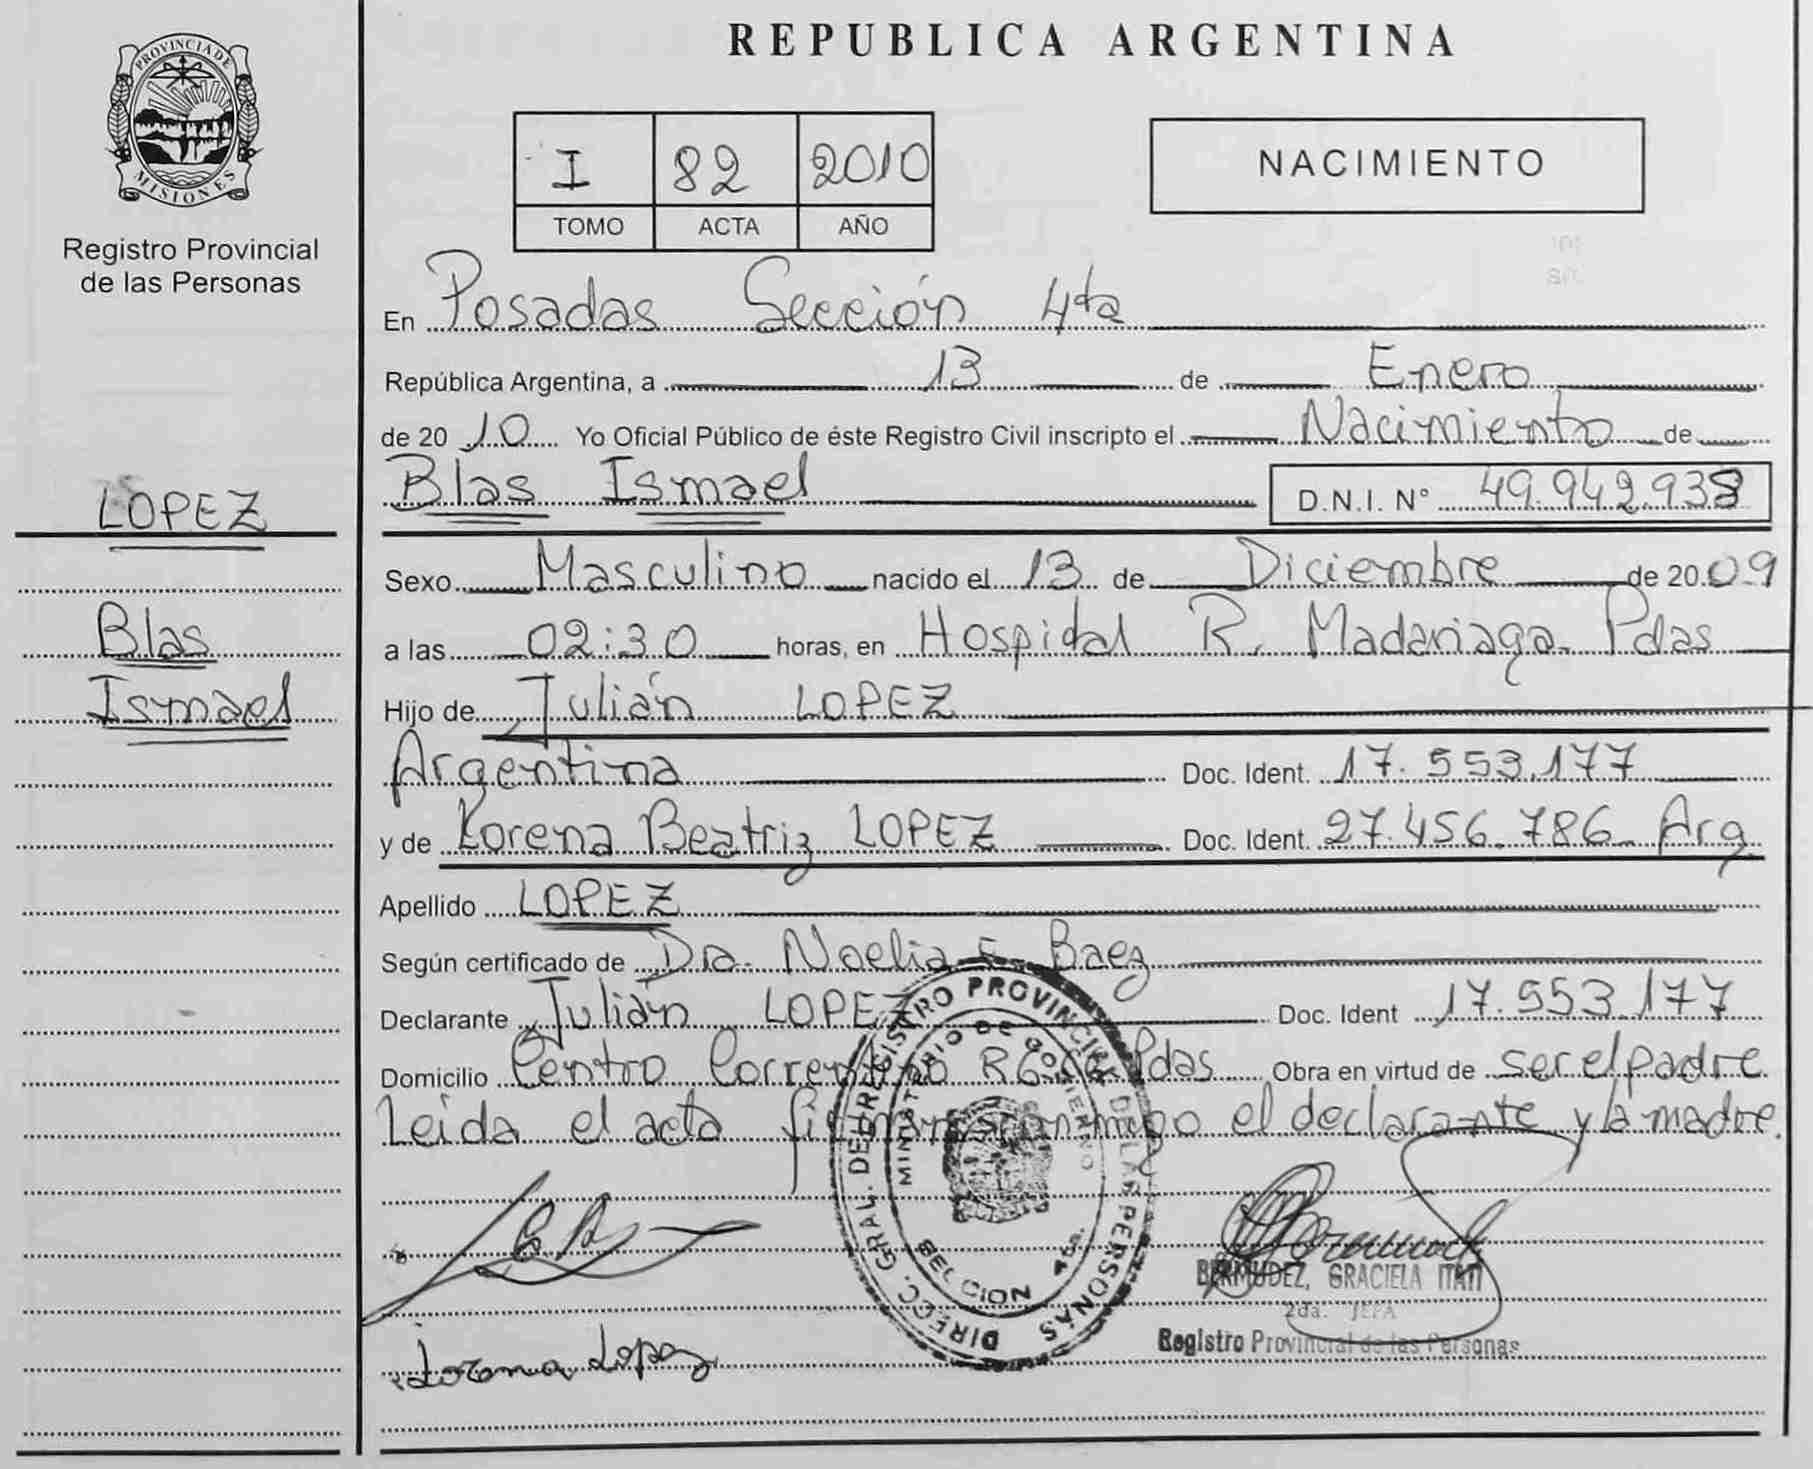 PROVINCIA DE
MISIONES
Registro Provincial
de las Personas
LOPEZ
Blas
Ismael
REPUBLICA ARGENTINA
I 82 2010
TOMO ACTA AÑO
NACIMIENTO
En Posadas Sección 4ta
República Argentina, a 13 de Enero
de 20 10 Yo Oficial Público de éste Registro Civil inscripto el Nacimiento de
Blas Ismael D.N.I. N° 49.942.938
Sexo Masculino nacido el 13 de Diciembre de 20 09
a las 02:30 horas, en Hospital R. Madariaga. Pdas
Hijo de Julián LOPEZ
Argentina Doc. Ident. 17.553.177
y de Lorena Beatriz LOPEZ Doc. Ident. 27.456.786 Arg.
Apellido LOPEZ
Según certificado de Dra. Noelia F. Baez
Declarante Julián LOPEZ Doc. Ident 17.553.177
Domicilio Centro Correntino Pdas Obra en virtud de ser el padre
Leída el acta firman conmigo el declarante y la madre.
DIRECC. GRAL. DEL REGISTRO PROVINCIAL DE LAS PERSONAS
MINISTERIO DE GOBIERNO
SECCION 4ta.
BERMUDEZ, GRACIELA ITATI
2da. JEFA
Registro Provincial de las Personas
Lorena Lopez